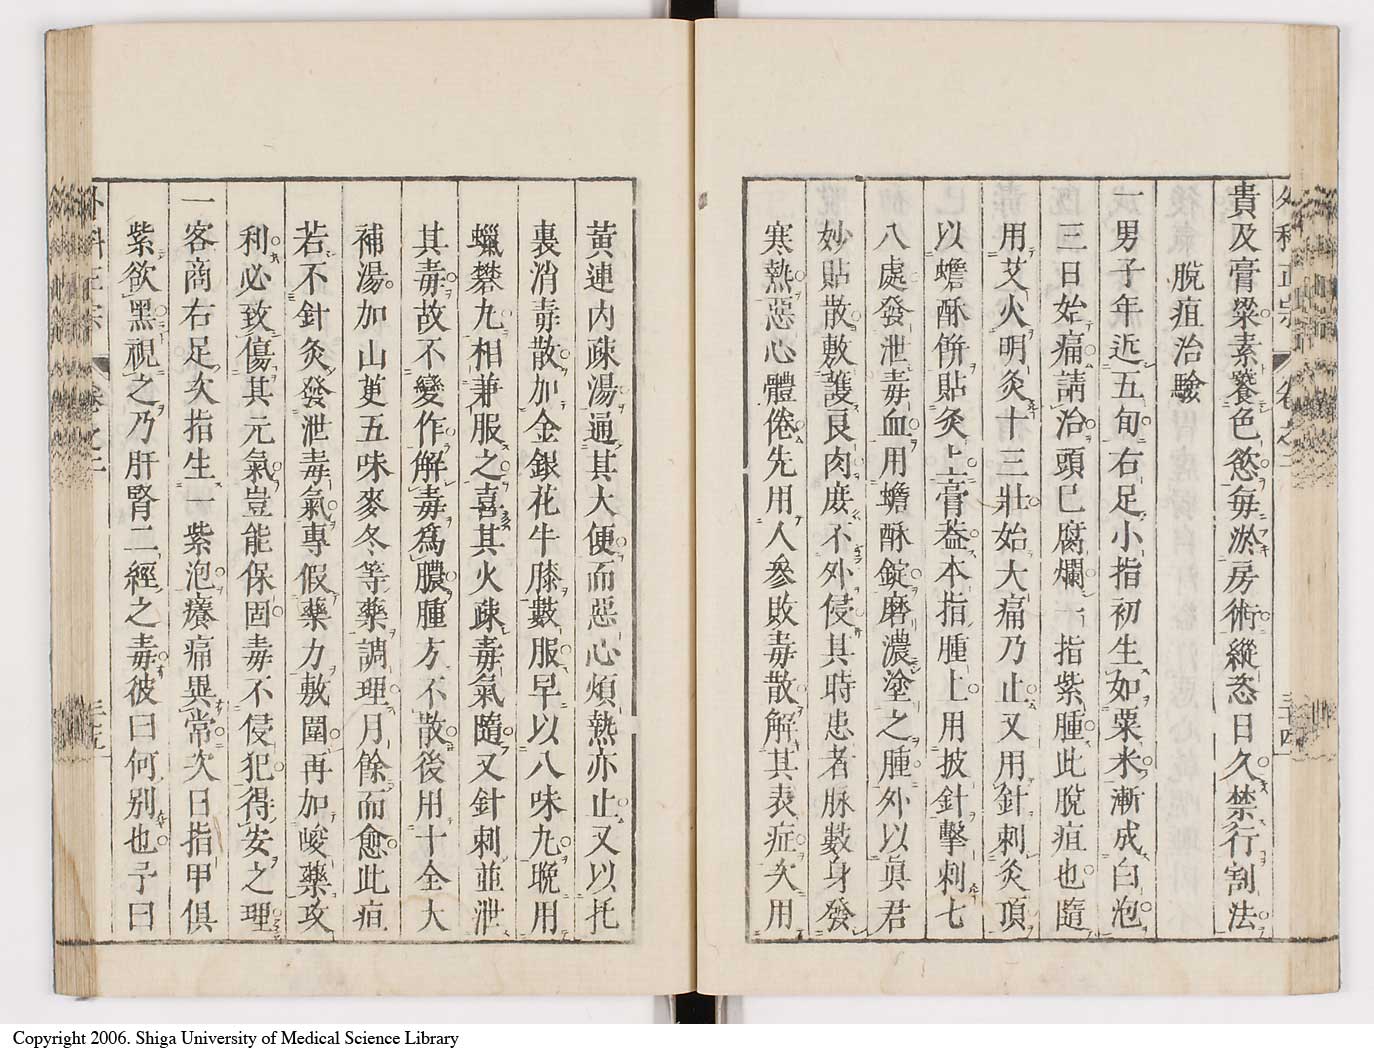 外科正宗 卷之二 三十四
貴及膏粱素饕色慾每淤房術縱恣日久禁行割法
脫疽治驗
一男子年近五旬右足小指初生如粟米漸成白泡
三日始痛請治頭已腐爛一指紫腫此脫疽也隨
用艾火明灸十三壯始大痛乃止又用針刺灸頂
以蟾酥餅貼灸上膏葢本指腫上用披針擊刺七
八處發泄毒血用蟾酥錠磨濃塗之腫外以真君
妙貼散敷護良肉庶不外侵其時患者脉數身發
寒熱惡心體倦先用人參敗毒散解其表症次用
黃連內疎湯通其大便而惡心煩熱亦止又以托
裏消毒散加金銀花牛膝數服早以八味丸晩用
蠟礬丸相兼服之喜其火疎毒氣隨又針刺並泄
其毒故不變作解毒為膿腫方不散後用十全大
補湯加山萸五味麥冬等藥調理月餘而愈此疽
若不針灸發泄毒氣專假藥力敷圍再加峻藥攻
利必致傷其元氣豈能保固毒不侵犯得安之理
一客商右足次指生一紫泡癢痛異常次日指甲俱
紫欲黑視之乃肝腎二經之毒彼曰何別也予曰
外科正宗 卷之二 三十五
Copyright 2006. Shiga University of Medical Science Library